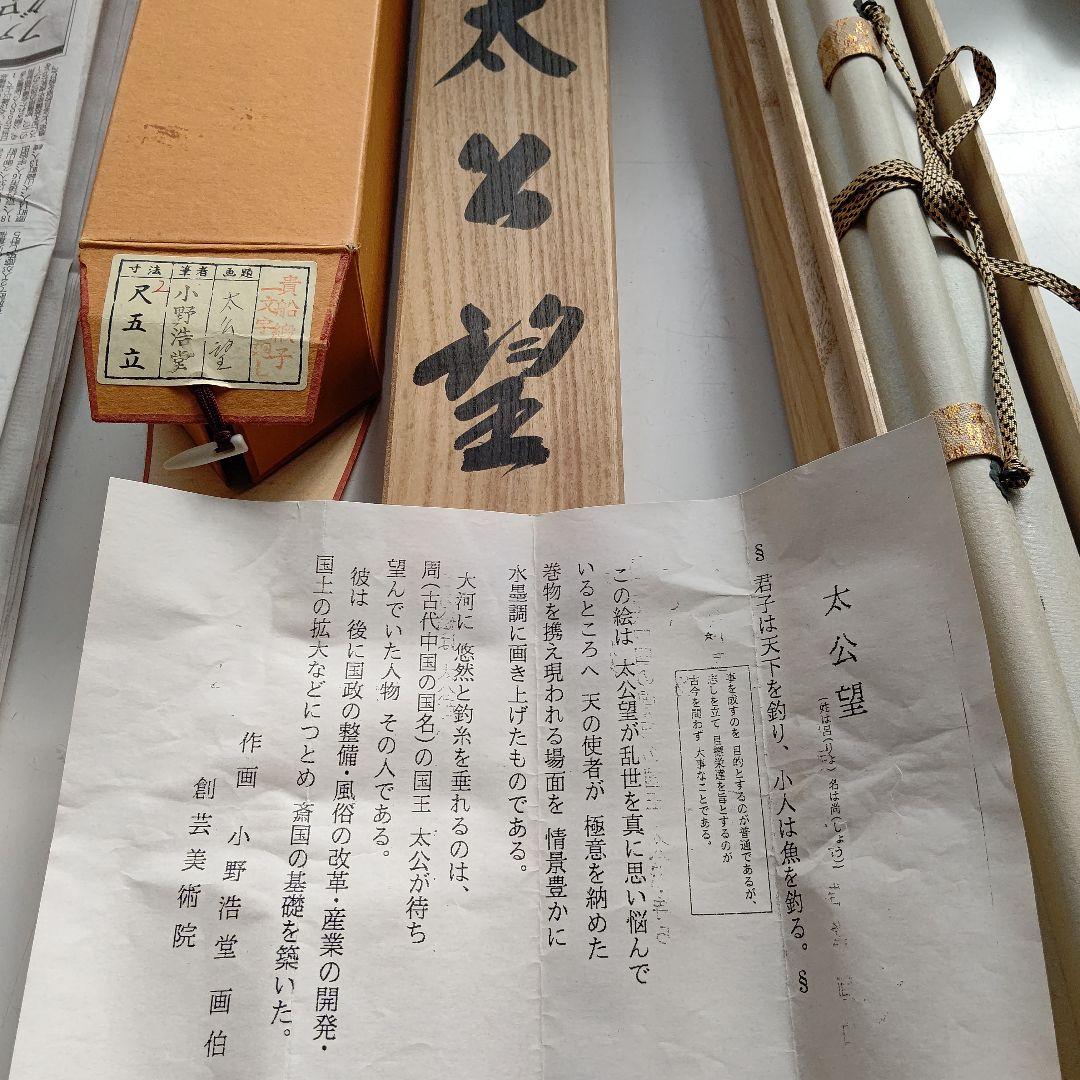 太
公
望
貴船緞子
一文字廻し
画題
太公望
筆者
小野浩堂
寸法
2
尺五立
太公望
(姓は呂(りょ) 名は尚(しょう))
§ 君子は天下を釣り、小人は魚を釣る。 §
事を成すのを 目的とするのが普通であるが、
志しを立て 目標栄達を旨とするのが
古今を問わず 大事なことである。
この絵は 太公望が乱世を真に思い悩んで
いるところへ 天の使者が 極意を納めた
巻物を携え現われる場面を 情景豊かに
水墨調に画き上げたものである。
大河に 悠然と釣糸を垂れるのは、
周(古代中国の国名)の国王 太公が待ち
望んでいた人物 その人である。
彼は 後に国政の整備・風俗の改革・産業の開発・
国土の拡大などにつとめ 斎国の基礎を築いた。
作画 小野浩堂 画伯
創芸美術院